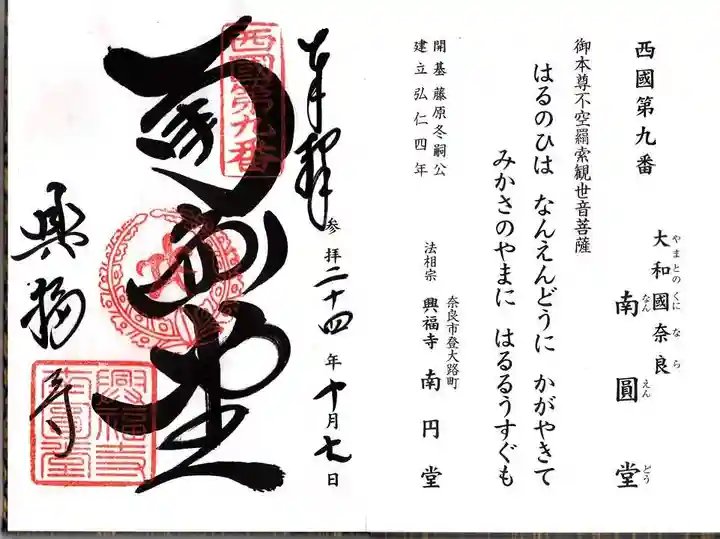 西國第九番
大和國奈良
やまとのくになら
南圓堂
なんえんどう
御本尊不空羂索観世音菩薩
はるのひは なんえんどうに かがやきて
みかさのやまに はるるうすぐも
開基藤原冬嗣公
建立弘仁四年
奈良市登大路町
法相宗 興福寺 南円堂
奉拝
参拝二十四年十月七日
西國第九番
南圓堂
興福寺
興福寺
南圓堂